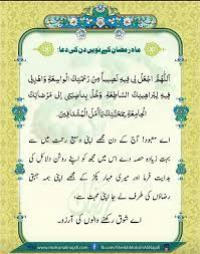 ماہ رمضان کے نویں دن کی دعا:
اَللّٰهُمَّ اجْعَلْ لِي فِيهِ نَصِيباً مِنْ رَحْمَتِكَ الْوَاسِعَةِ وَاهْدِنِي
فِيهِ لِبَرَاهِينِكَ السَّاطِعَةِ وَخُذْ بِنَاصِيَتِي إِلَى مَرْضَاتِكَ
الْجَامِعَةِ بِمَحَبَّتِكَ يَا أَمَلَ الْمُشْتَاقِينَ
اے معبود! آج کے دن مجھے اپنی وسیع رحمت میں سے
بہت زیادہ حصہ دے اس میں مجھ کو اپنے روشن دلائل کی
ہدایت فرما اور میری مہار پکڑ کے مجھے اپنی ہمہ جہتی
رضاؤں کی طرف لے جا اپنی محبت سے،
اے شوق رکھنے والوں کی آرزو۔